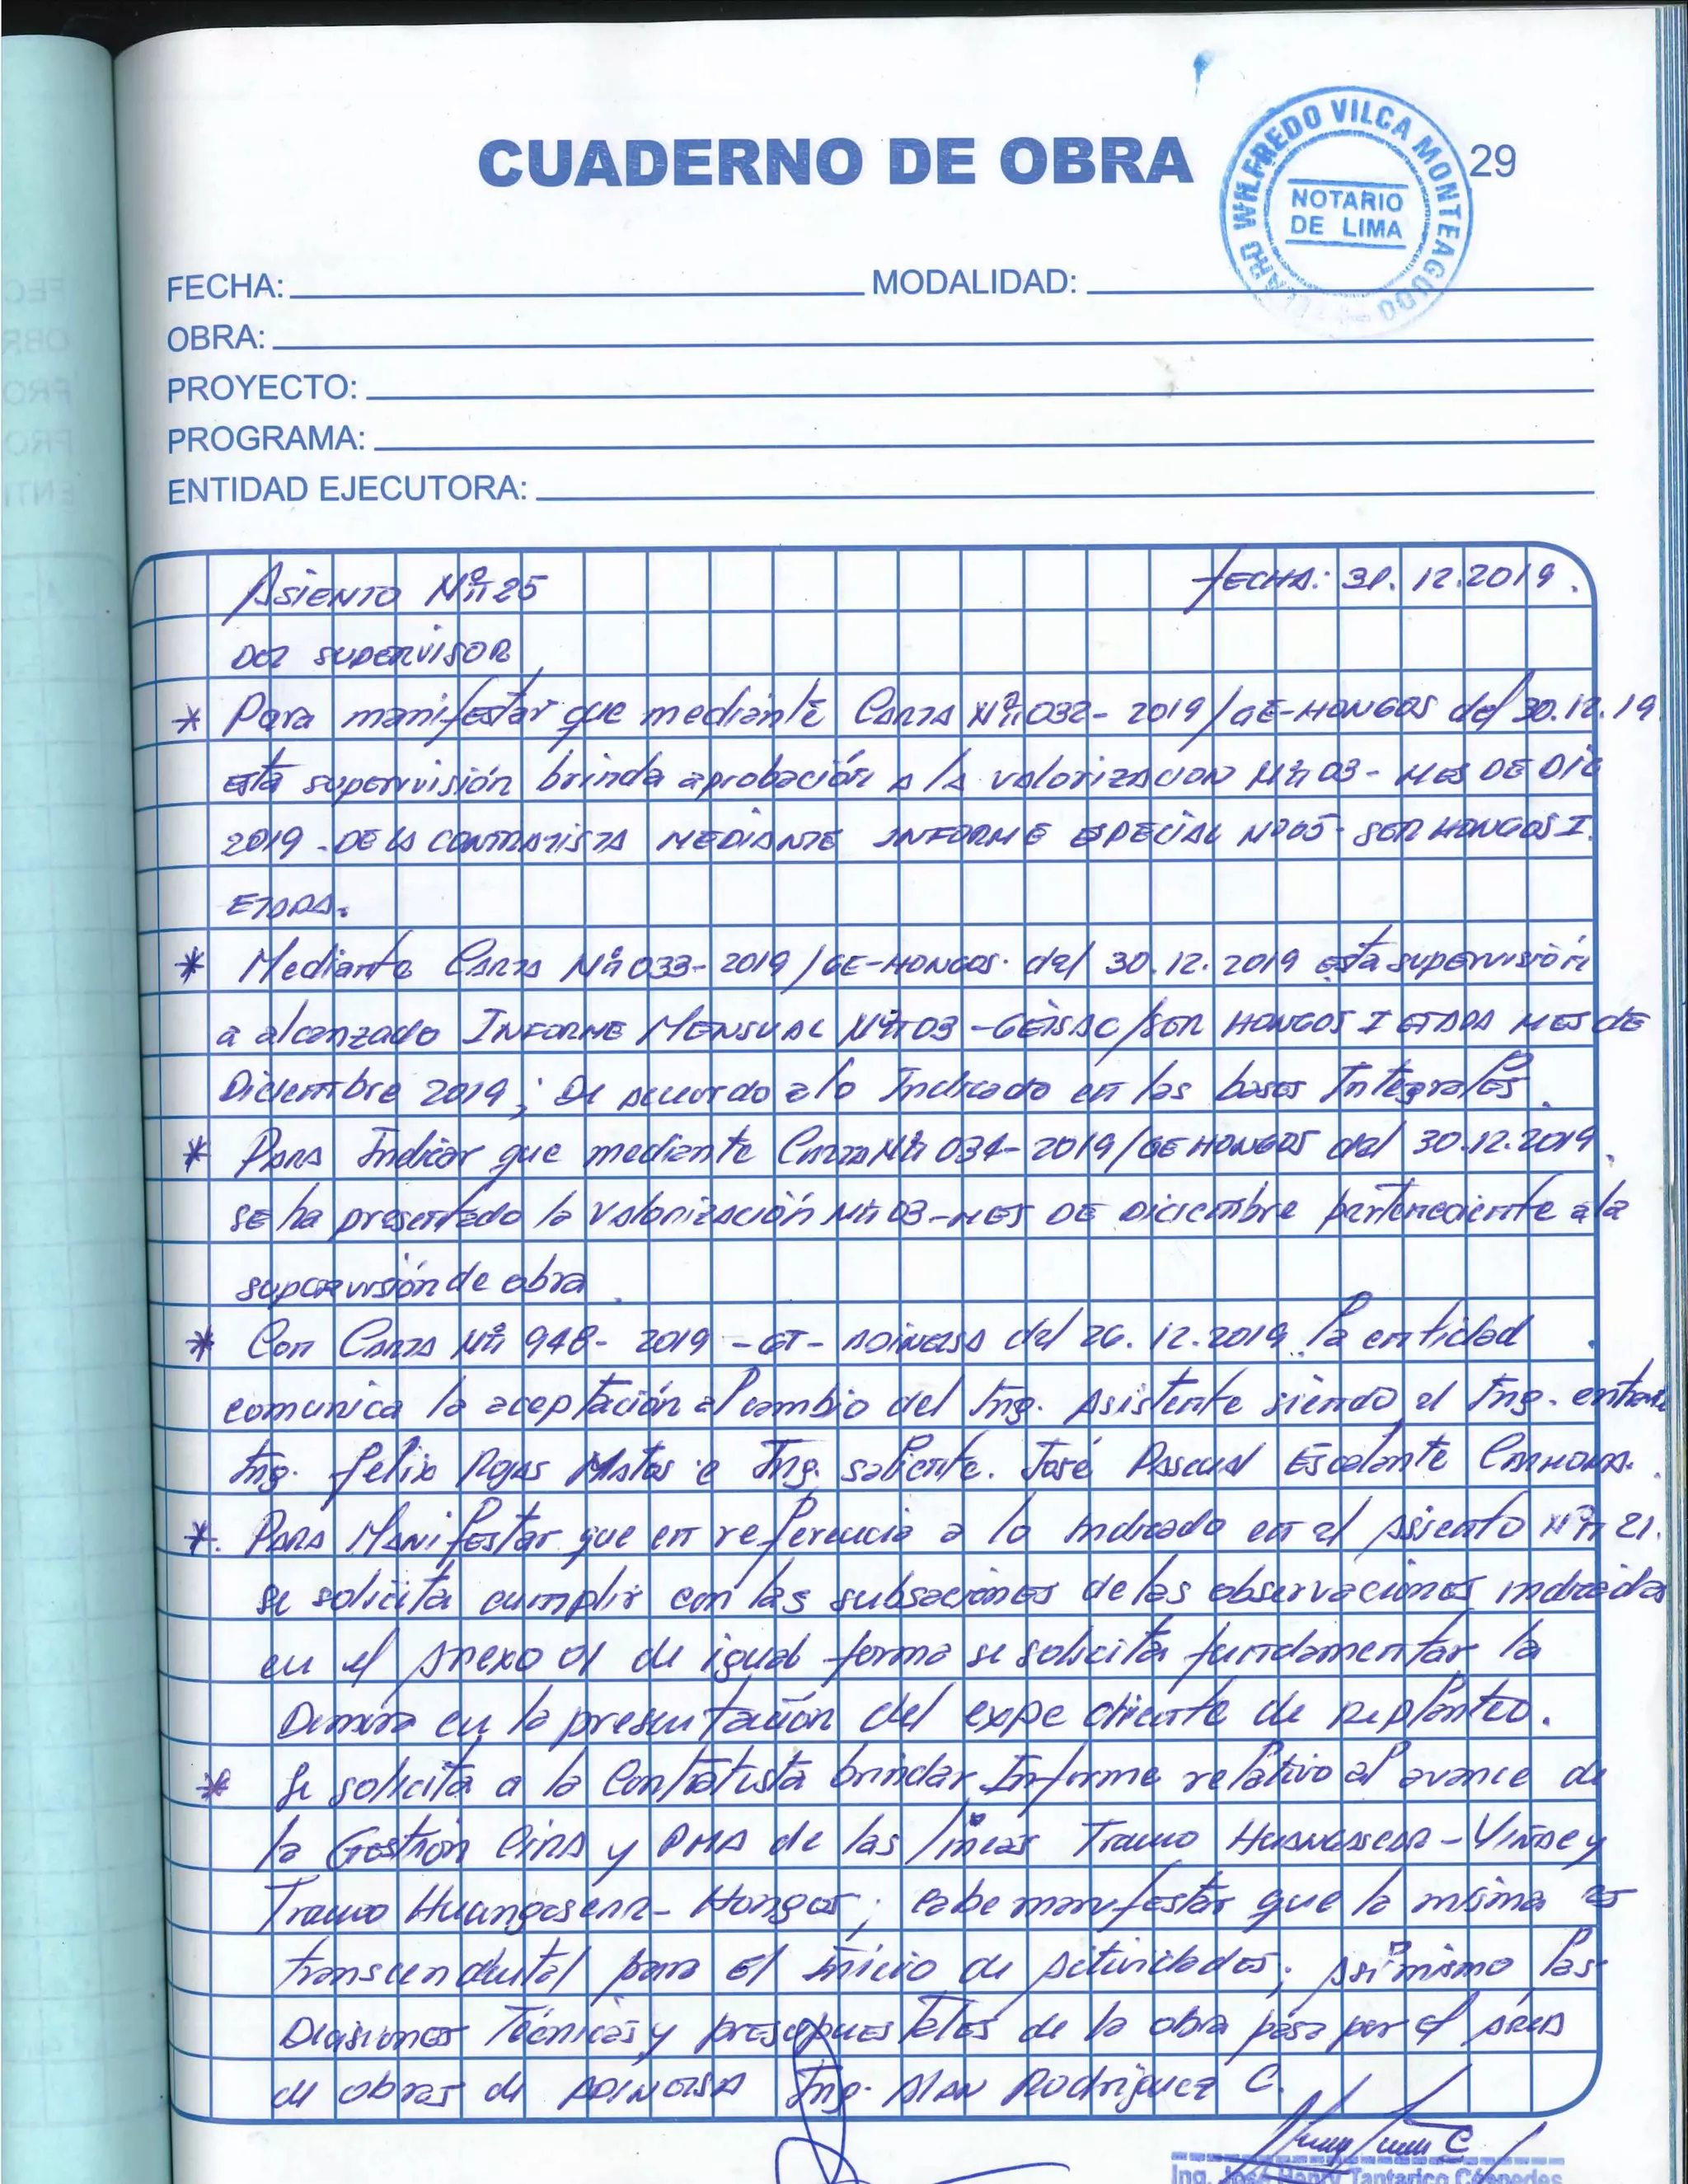 CUADERNO DE OBRA
29
WILFREDO VILCA MONTEAGUDO
NOTARIO
DE LIMA
FECHA:
MODALIDAD:
OBRA:
PROYECTO:
PROGRAMA:
ENTIDAD EJECUTORA:
Asiento Nº 25 FECHA: 31.12.2019.
Del supervisor
* Para manifestar que mediante Carta Nº 032-2019/GE-HONGOS del 30.12.19
esta supervisión brinda aprobación a la valorizacion Nº 03 - MES DE DIC
2019 - DE LA CONTRATISTA MEDIANTE INFORME ESPECIAL Nº 05- SER HONGOS I
ETAPA.
* Mediante Carta Nº 033-2019/GE-HONGOS. del 30.12.2019 esta supervisión
a alcanzado INFORME MENSUAL Nº 03 -GEISAC/SER HONGOS I ETAPA MES DE
Diciembre 2019; De acuerdo a lo Indicado en las bases Integrales.
* Para Indicar que mediante Carta Nº 034-2019/GE HONGOS del 30.12.2019.
se ha presentado la valorización Nº 03-MES DE Diciembre perteneciente a la
supervisión de obra.
* Con Carta Nº 948-2019-GT-ADINELSA del 26.12.2019. la entidad
comunica la aceptación al cambio del Ing. Asistente siendo el Ing.
Ing. Felix Rojas Matos e Ing. saliente. José Pascual Escalante
*. Para Manifestar que en referencia a lo indicado en el Asiento Nº 21.
se solicita cumplir con las subsaciones de las observaciones indicadas
en el Anexo 01 de igual forma se solicita fundamentar la
Demora en la presentación del expediente de Replanteo.
* Se solicita a la Contratista brindar Informe relativo al avance de
la Gestión CIRA y PMA de las líneas Tramo Huangascar-Viñac y
Tramo Huangascar-Hongos; cabe manifestar que la misma es
transcendental para el inicio de Actividades; Asi mismo las
Decisiones Técnicas y presupuestales de la obra pasa por el Área
de obras de ADINELSA Ing. Alan Rodriguez C.
Ing. José Henry Tantarico Céspedes